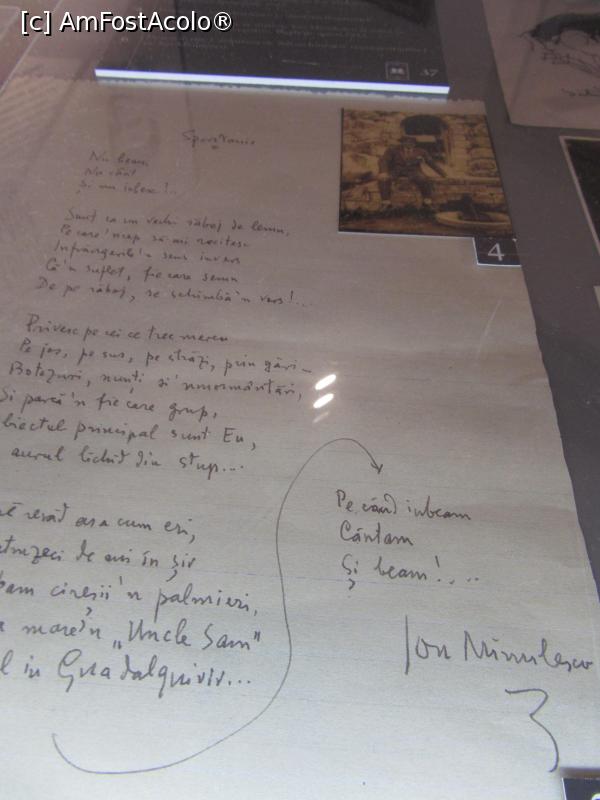 [c] AmFostAcolo®
37
Nu beau
Nu cânt
Și nu iubesc!..
Sunt ca un vechi răboj de lemn,
Pe care 'ncep să-mi recitesc
Înfrângerile 'n sens invers
Că 'n suflet, fiecare semn
De pe răboj, se schimbă 'n vers!...
Privesc pe cei ce trec mereu
Pe jos, pe sus, pe străzi, prin gări –
Botezuri, nunți și 'nmormântări,
Și parcă 'n fiecare grup,
biectul principal sunt Eu,
aurul lichid din stup...
revăd așa cum eri,
de ani în șir
cireșii 'n palmieri,
mare'n „Uncle Sam"
l in Guadalquivir...
Pe când iubeam
Cântam
Și beam!...
Ion Minulescu
4
3